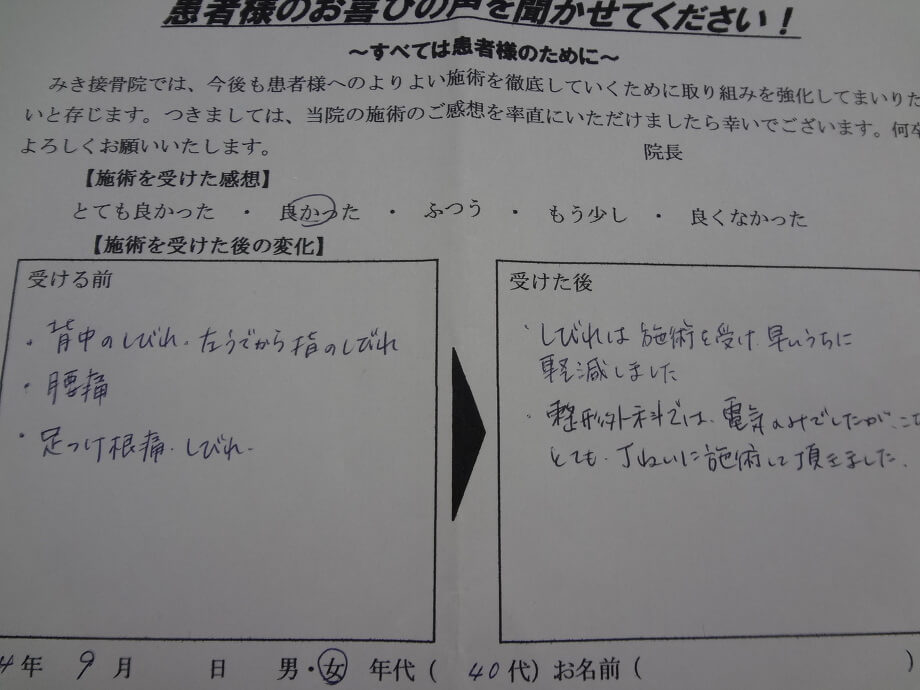 患者様のお喜びの声を聞かせてください！
～すべては患者様のために～
みき接骨院では、今後も患者様へのよりよい施術を徹底していくために取り組みを強化してまいりた
いと存じます。つきましては、当院の施術のご感想を率直にいただけましたら幸いでございます。何卒
よろしくお願いいたします。 院長
【施術を受けた感想】
とても良かった ・ 良かった ・ ふつう ・ もう少し ・ 良くなかった
【施術を受けた後の変化】
受ける前
・背中のしびれ・左うでから指のしびれ
・腰痛
・足つけ根痛・しびれ・
受けた後
・しびれは施術を受け、早いうちに
軽減しました
・整形外科では、電気のみでしたが、こ
とても、丁ねいに施術して頂きました。
4年 9月 日 男・女 年代（ 40代）お名前（ ）